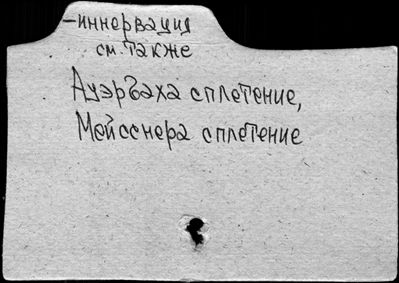 -иннервация
см. также
Ауэрбаха сплетение,
Мейсснера сплетение